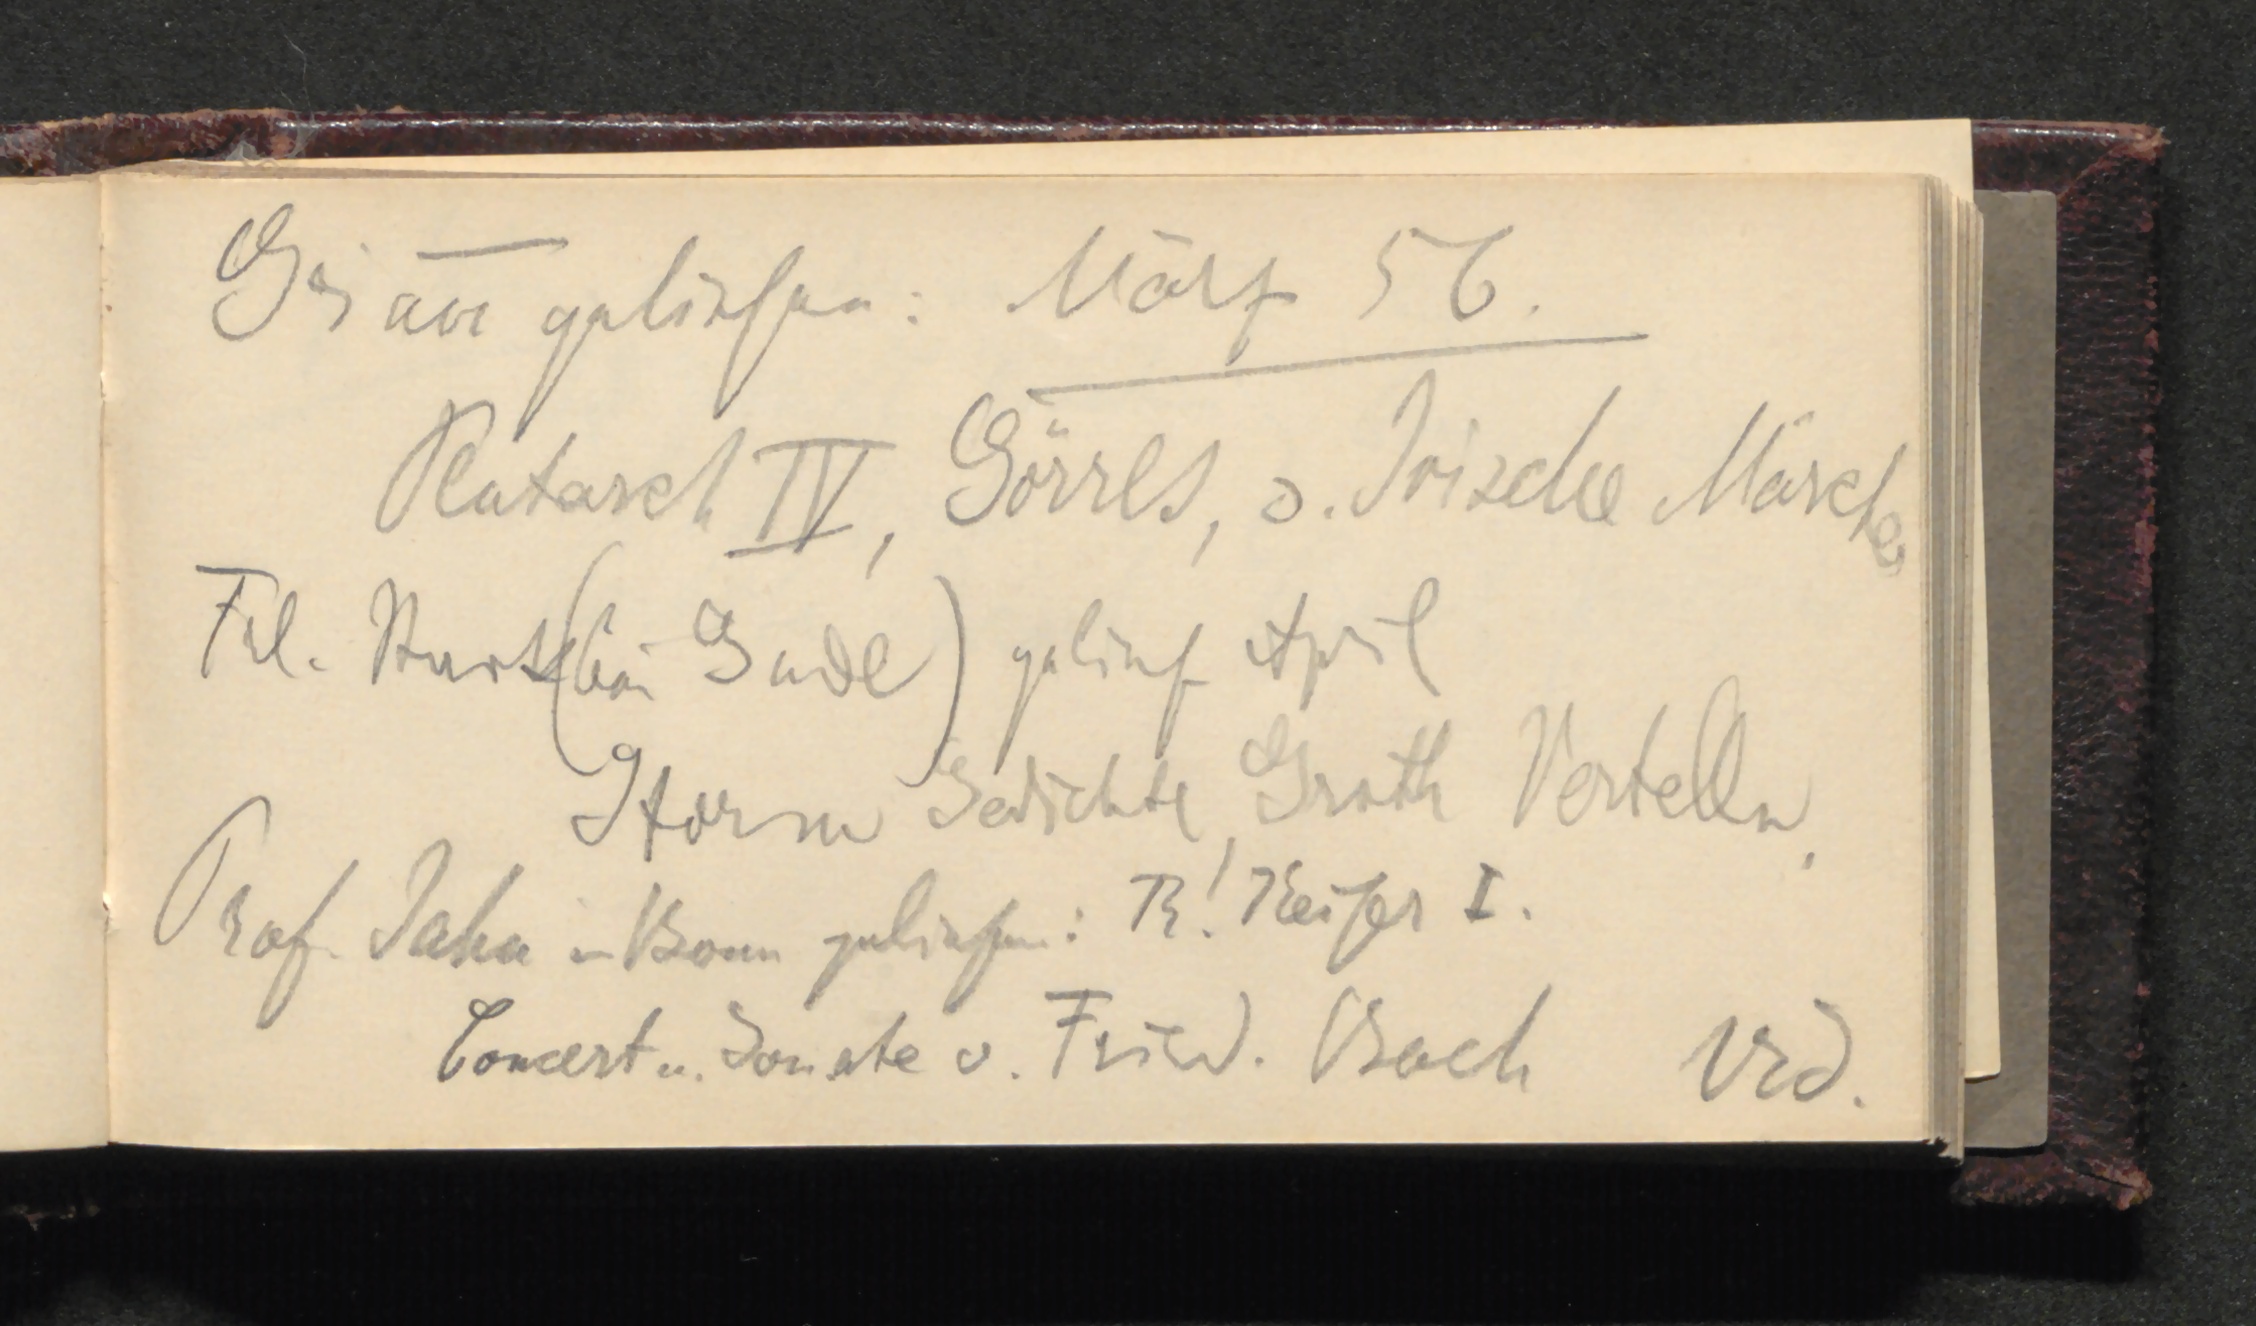 Grimm geliehen: März 56.
Plutarch IV, Görres, d. Irische Märche
Frl. (bei Gude) gelieh April
Storm Gedichte, Groth Vertelln,
Prof. Jahn in Bonn geliehen: I.
Concert u. Sonate v. Fried. Bach